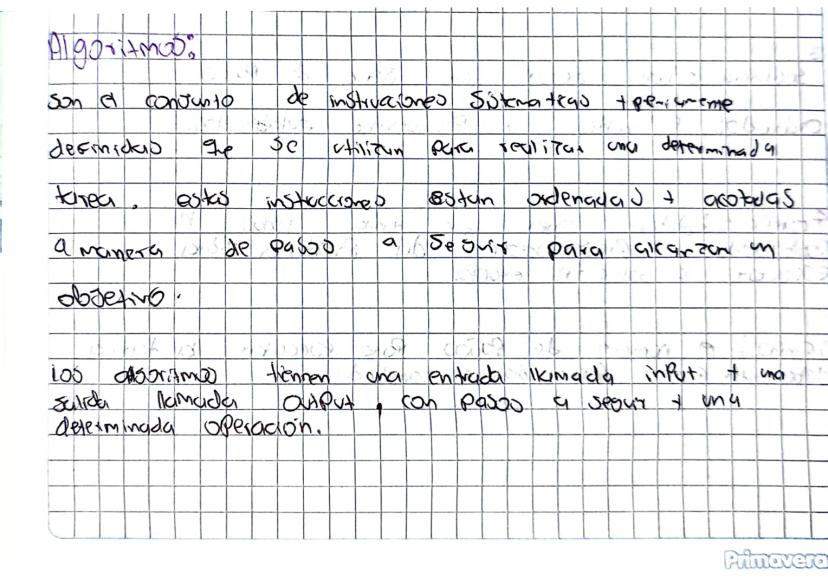 Algoritmos:
son el conjunto de instrucciones sistematicas +
definidas que se utilizan para realizar una determinada
tarea. estas instrucciones estan ordenadas + acotadas
a manera de pasos a seguir para alcanzar un
objetivo.
Los algoritmos tiennen una entrada llamada input + una
salida llamada output, con pasos a seguir + una
determinada operación.
Primavera